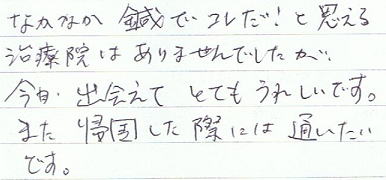 なかなか 鍼で コレだ!と 思える
治療院は ありませんでしたが、
今日、出会えて とても うれしいです。
また 帰国した 際には 通いたい
です。